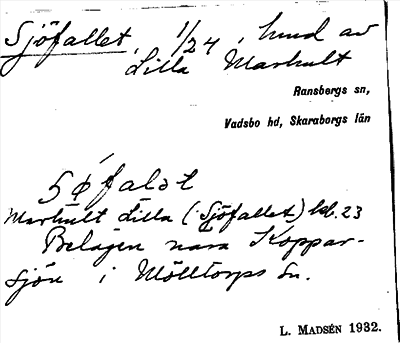 Sjöfallet, 1/24, hmd av
Lilla Marhult
Ransbergs sn,
Vadsbo hd, Skaraborgs län
Marhult Lilla (Sjöfallet) kbl. 23
Belägen nära Koppar-
sjön i Mölltorps sn.
L. MADSÉN 1932.